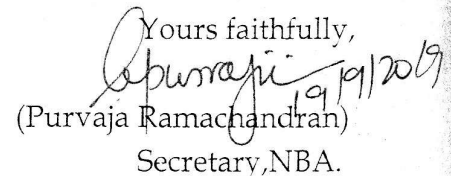 Yours faithfully,
19/9/2019
(Purvaja Ramachandran)
Secretary,NBA.